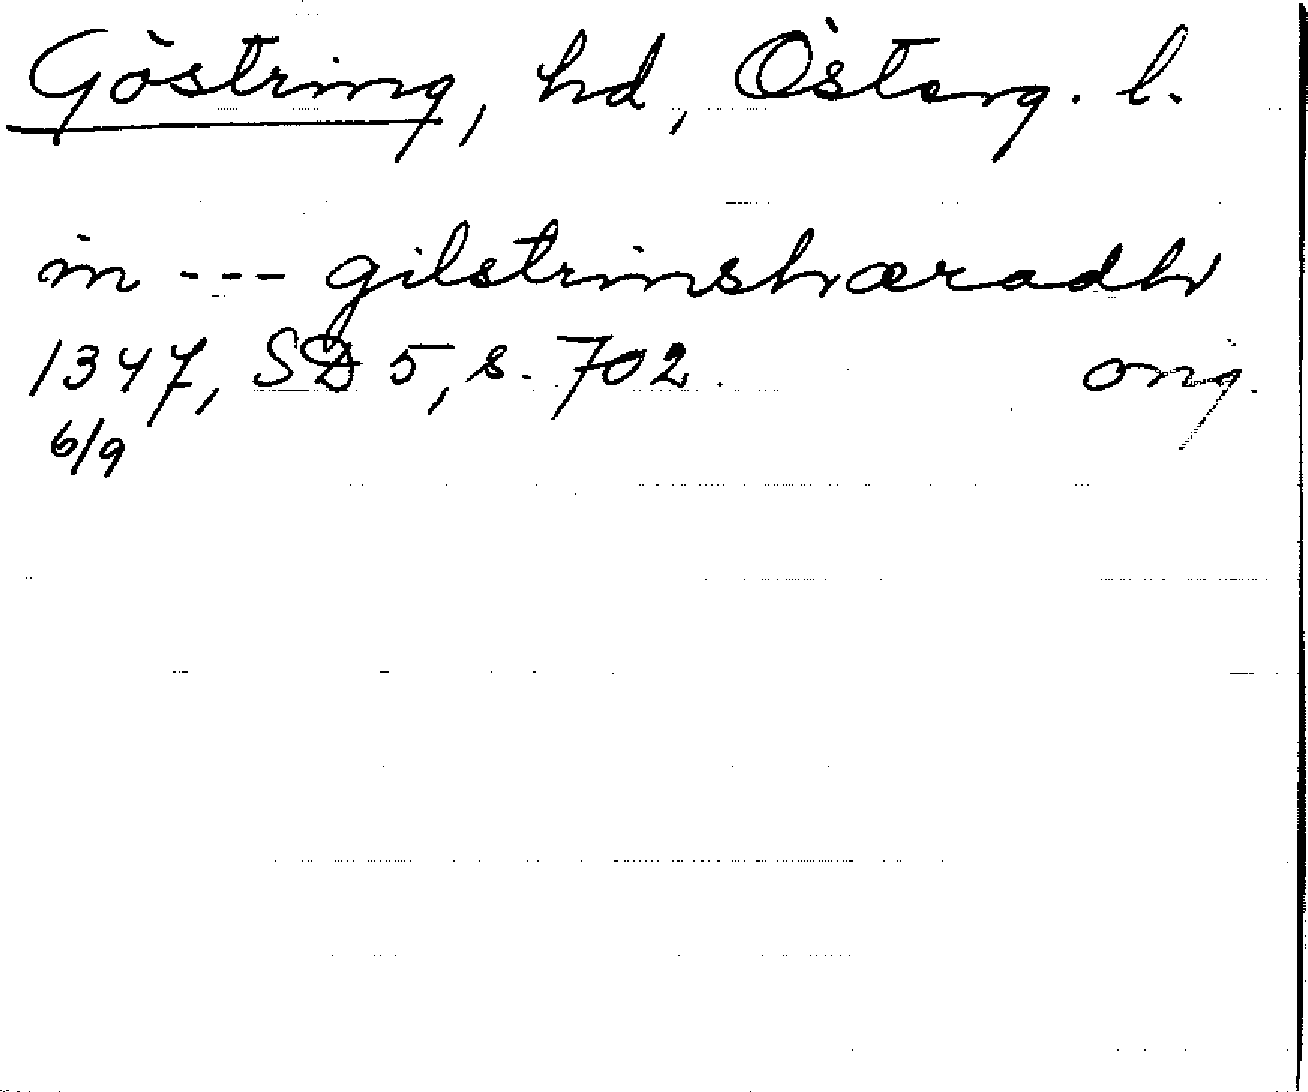 Göstring, hd, Österg. l.
in --- gilstrimshæradh
1347, SD 5, s. 702 orig.
6/9